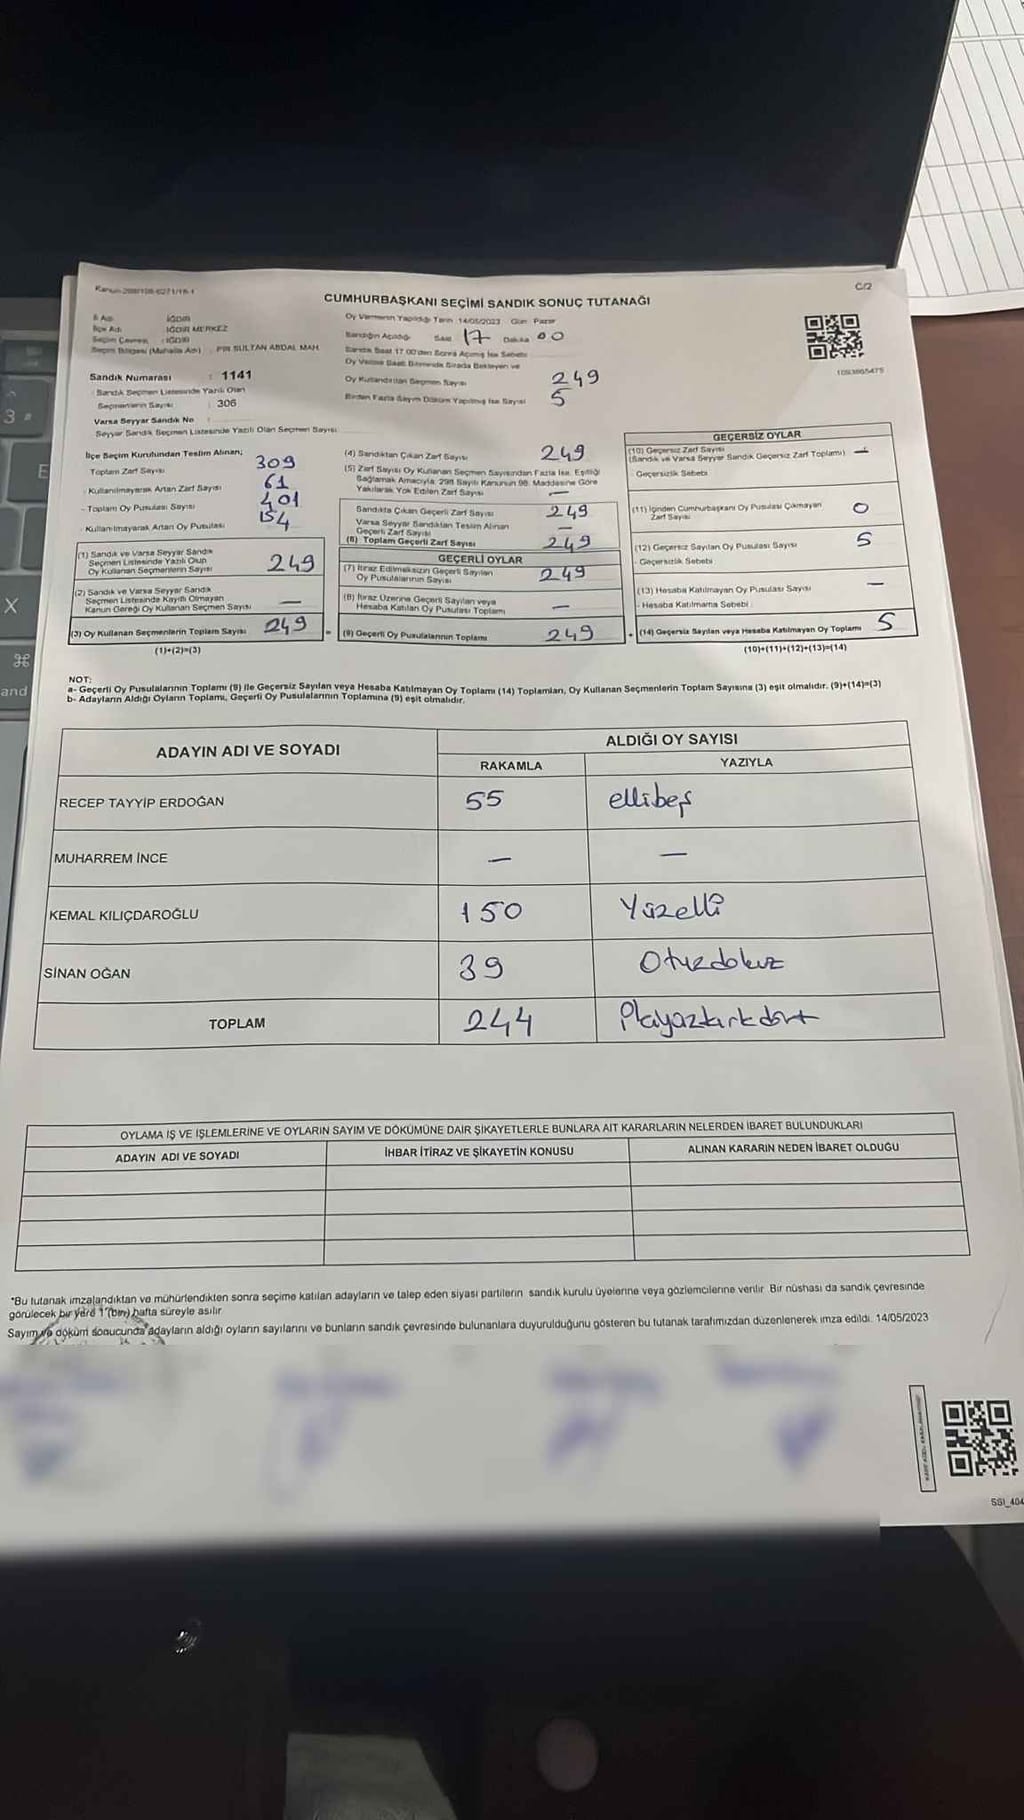 C/2
CUMHURBAŞKANI SEÇİMİ SANDIK SONUÇ TUTANAĞI
İl Adı : IĞDIR
İlçe Adı : IĞDIR MERKEZ
Seçim Çevresi : IĞDIR
Seçim Bölgesi (Mahalle Adı) : PİR SULTAN ABDAL MAH.
Sandık Numarası : 1141
Sandık Seçmen Listesinde Yazılı Olan
Seçmenlerin Sayısı : 306
Varsa Seyyar Sandık No
Seyyar Sandık Seçmen Listesinde Yazılı Olan Seçmen Sayısı
Oy Vermenin Yapıldığı Tarih 14/05/2023 Gün Pazar
Sandığın Açıldığı Saat 17 Dakika 00
Sandık Saat 17.00'den Sonra Açılmış İse Sebebi
Oy Verme Saati Bitiminde Sırada Bekleyen ve
Oy Kullandırılan Seçmen Sayısı 249
Birden Fazla Sayım Döküm Yapılmış İse Sayısı 5
1093865475
İlçe Seçim Kurulundan Teslim Alınan;
Toplam Zarf Sayısı 309
- Kullanılmayarak Artan Zarf Sayısı 61
- Toplam Oy Pusulası Sayısı 401
- Kullanılmayarak Artan Oy Pusulası 154
(1) Sandık ve Varsa Seyyar Sandık
Seçmen Listesinde Yazılı Olup
Oy Kullanan Seçmenlerin Sayısı 249
(2) Sandık ve Varsa Seyyar Sandık
Seçmen Listesinde Kayıtlı Olmayan
Kanun Gereği Oy Kullanan Seçmen Sayısı —
(3) Oy Kullanan Seçmenlerin Toplam Sayısı 249
(1)+(2)=(3)
(4) Sandıktan Çıkan Zarf Sayısı 249
(5) Zarf Sayısı Oy Kullanan Seçmen Sayısından Fazla İse, Eşitliği
Sağlamak Amacıyla, 298 Sayılı Kanunun 98. Maddesine Göre
Yakılarak Yok Edilen Zarf Sayısı —
Sandıkta Çıkan Geçerli Zarf Sayısı 249
Varsa Seyyar Sandıktan Teslim Alınan
Geçerli Zarf Sayısı —
(6) Toplam Geçerli Zarf Sayısı 249
GEÇERLİ OYLAR
(7) İtiraz Edilmeksizin Geçerli Sayılan
Oy Pusulalarının Sayısı 249
(8) İtiraz Üzerine Geçerli Sayılan veya
Hesaba Katılan Oy Pusulası Toplamı —
= (9) Geçerli Oy Pusulalarının Toplamı 249
GEÇERSİZ OYLAR
(10) Geçersiz Zarf Sayısı
(Sandık ve Varsa Seyyar Sandık Geçersiz Zarf Toplamı) —
Geçersizlik Sebebi
(11) İçinden Cumhurbaşkanı Oy Pusulası Çıkmayan
Zarf Sayısı 0
(12) Geçersiz Sayılan Oy Pusulası Sayısı 5
- Geçersizlik Sebebi
(13) Hesaba Katılmayan Oy Pusulası Sayısı —
- Hesaba Katılmama Sebebi
+ (14) Geçersiz Sayılan veya Hesaba Katılmayan Oy Toplamı 5
(10)+(11)+(12)+(13)=(14)
NOT:
a- Geçerli Oy Pusulalarının Toplamı (9) ile Geçersiz Sayılan veya Hesaba Katılmayan Oy Toplamı (14) Toplamları, Oy Kullanan Seçmenlerin Toplam Sayısına (3) eşit olmalıdır. (9)+(14)=(3)
b- Adayların Aldığı Oyların Toplamı, Geçerli Oy Pusulalarının Toplamına (9) eşit olmalıdır.
ADAYIN ADI VE SOYADI
ALDIĞI OY SAYISI
RAKAMLA YAZIYLA
RECEP TAYYİP ERDOĞAN 55 ellibeş
MUHARREM İNCE — —
KEMAL KILIÇDAROĞLU 150 Yüzelli
SİNAN OĞAN 39 Otuzdokuz
TOPLAM 244
OYLAMA İŞ VE İŞLEMLERİNE VE OYLARIN SAYIM VE DÖKÜMÜNE DAİR ŞİKAYETLERLE BUNLARA AİT KARARLARIN NELERDEN İBARET BULUNDUKLARI
ADAYIN ADI VE SOYADI İHBAR İTİRAZ VE ŞİKAYETİN KONUSU ALINAN KARARIN NEDEN İBARET OLDUĞU
*Bu tutanak imzalandıktan ve mühürlendikten sonra seçime katılan adayların ve talep eden siyasi partilerin sandık kurulu üyelerine veya gözlemcilerine verilir. Bir nüshası da sandık çevresinde
görülecek bir yere 1 (bir) hafta süreyle asılır
Sayım ve döküm sonucunda adayların aldığı oyların sayılarını ve bunların sandık çevresinde bulunanlara duyurulduğunu gösteren bu tutanak tarafımızdan düzenlenerek imza edildi. 14/05/2023
SSI_404
3
E
X
⌘
and